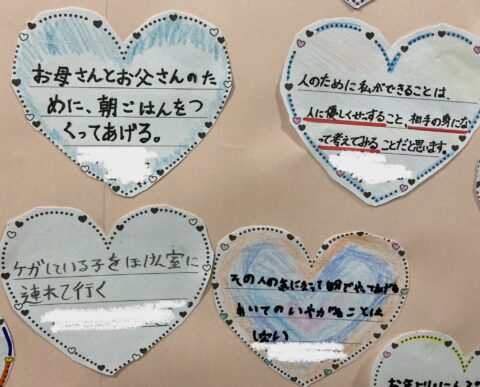 お母さんとお父さんのた
めに、朝ごはんをつ
くってあげる。
人のために私ができることは、
人に優しくせっすること、相手の身にな
って考えてみることだと思います。
ケガしている子をほけん室に
連れて行く
その人の
あいてのいやがることは
しない